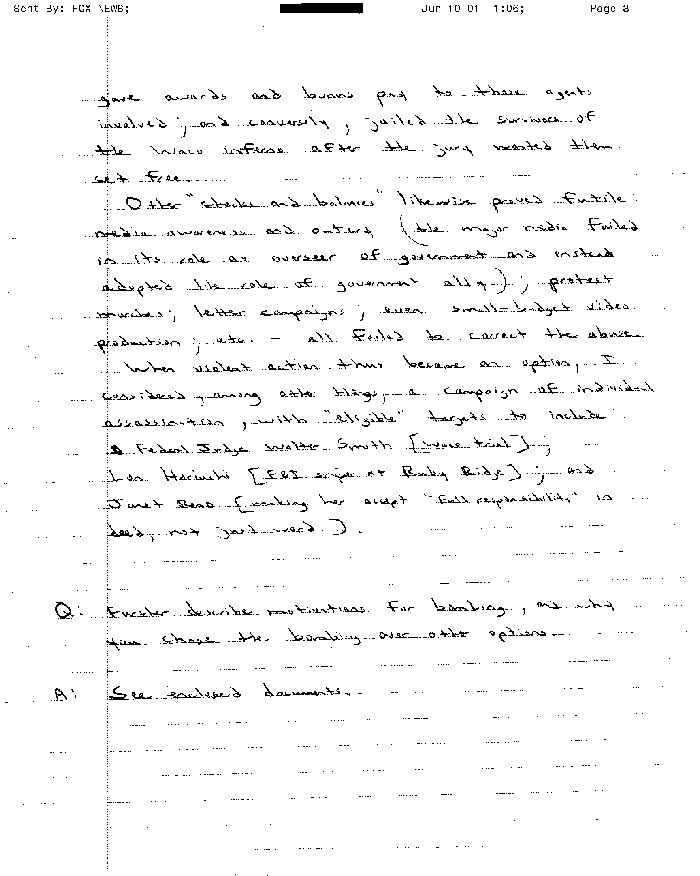 Sent By: FOX NEWS; Jun-10-01 1:06; Page 3
gave awards and bonus pay to those agents
involved; and conversely, jailed the survivors of
the Waco inferno after the jury wanted them
set free.
Other "checks and balances" likewise proved futile:
media awareness and outcry (the major media failed
in its role as overseer of government and instead
adopted the role of government ally); protest
marches; letter campaigns; even small-budget video
production; etc. - all failed to correct the abuse.
When violent action thus became an option, I
considered, among other things, a campaign of individual
assassination, with "eligible" targets to include
Federal Judge Walter Smith [Waco trial];
Lon Horiuchi [FBI sniper at Ruby Ridge]; and
Janet Reno [making her accept "full responsibility" in
deed, not just word.].
Q: Further describe motivations for bombing, and why
you chose the bombing over other options.
A: See enclosed documents.